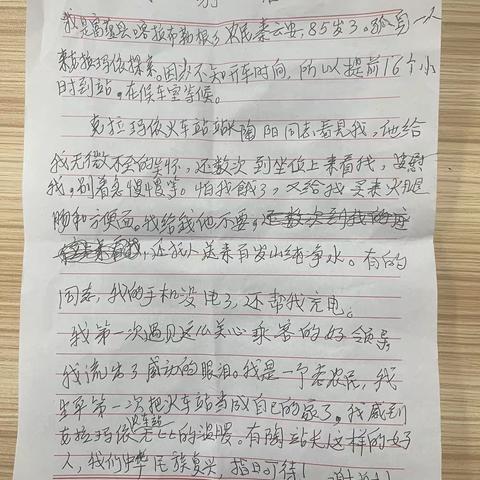 我是富蕴县喀拉布勒根乡农民秦云安，85岁了。孤身一人
来克拉玛依探亲。因为不知开车时间，所以提前16个小
时到站。在候车室等候。
克拉玛依火车站站长陶阳同志看见我，他给
我无微不至的关怀，还数次到坐位上来看我，安慰
我，别着急慢慢等。怕我饿了，又给我买来火腿
肠和方便面。我给钱他不要，还数次到我的
还托人送来百岁山纯净水。有的
同志，我的手机没电了，还帮我充电。
我第一次遇见这么关心乘客的好领导
我流出了感动的眼泪。我是一个老农民，我
生平第一次把火车站当成自己的家了。我感到
克拉玛依火车站无比的温暖。有陶站长这样的好
人，我们中华民族复兴，指日可待！谢谢！